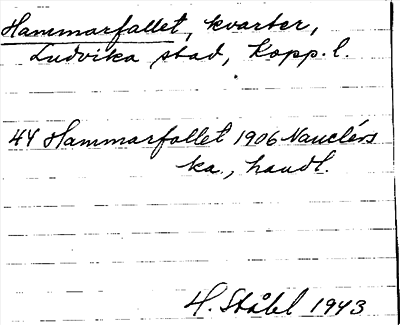 Hammarfallet, kvarter,
Ludvika stad, Kopp. l.
44 Hammarfallet 1906 Nauclérs
ka., handl.
H. Ståhl 1943